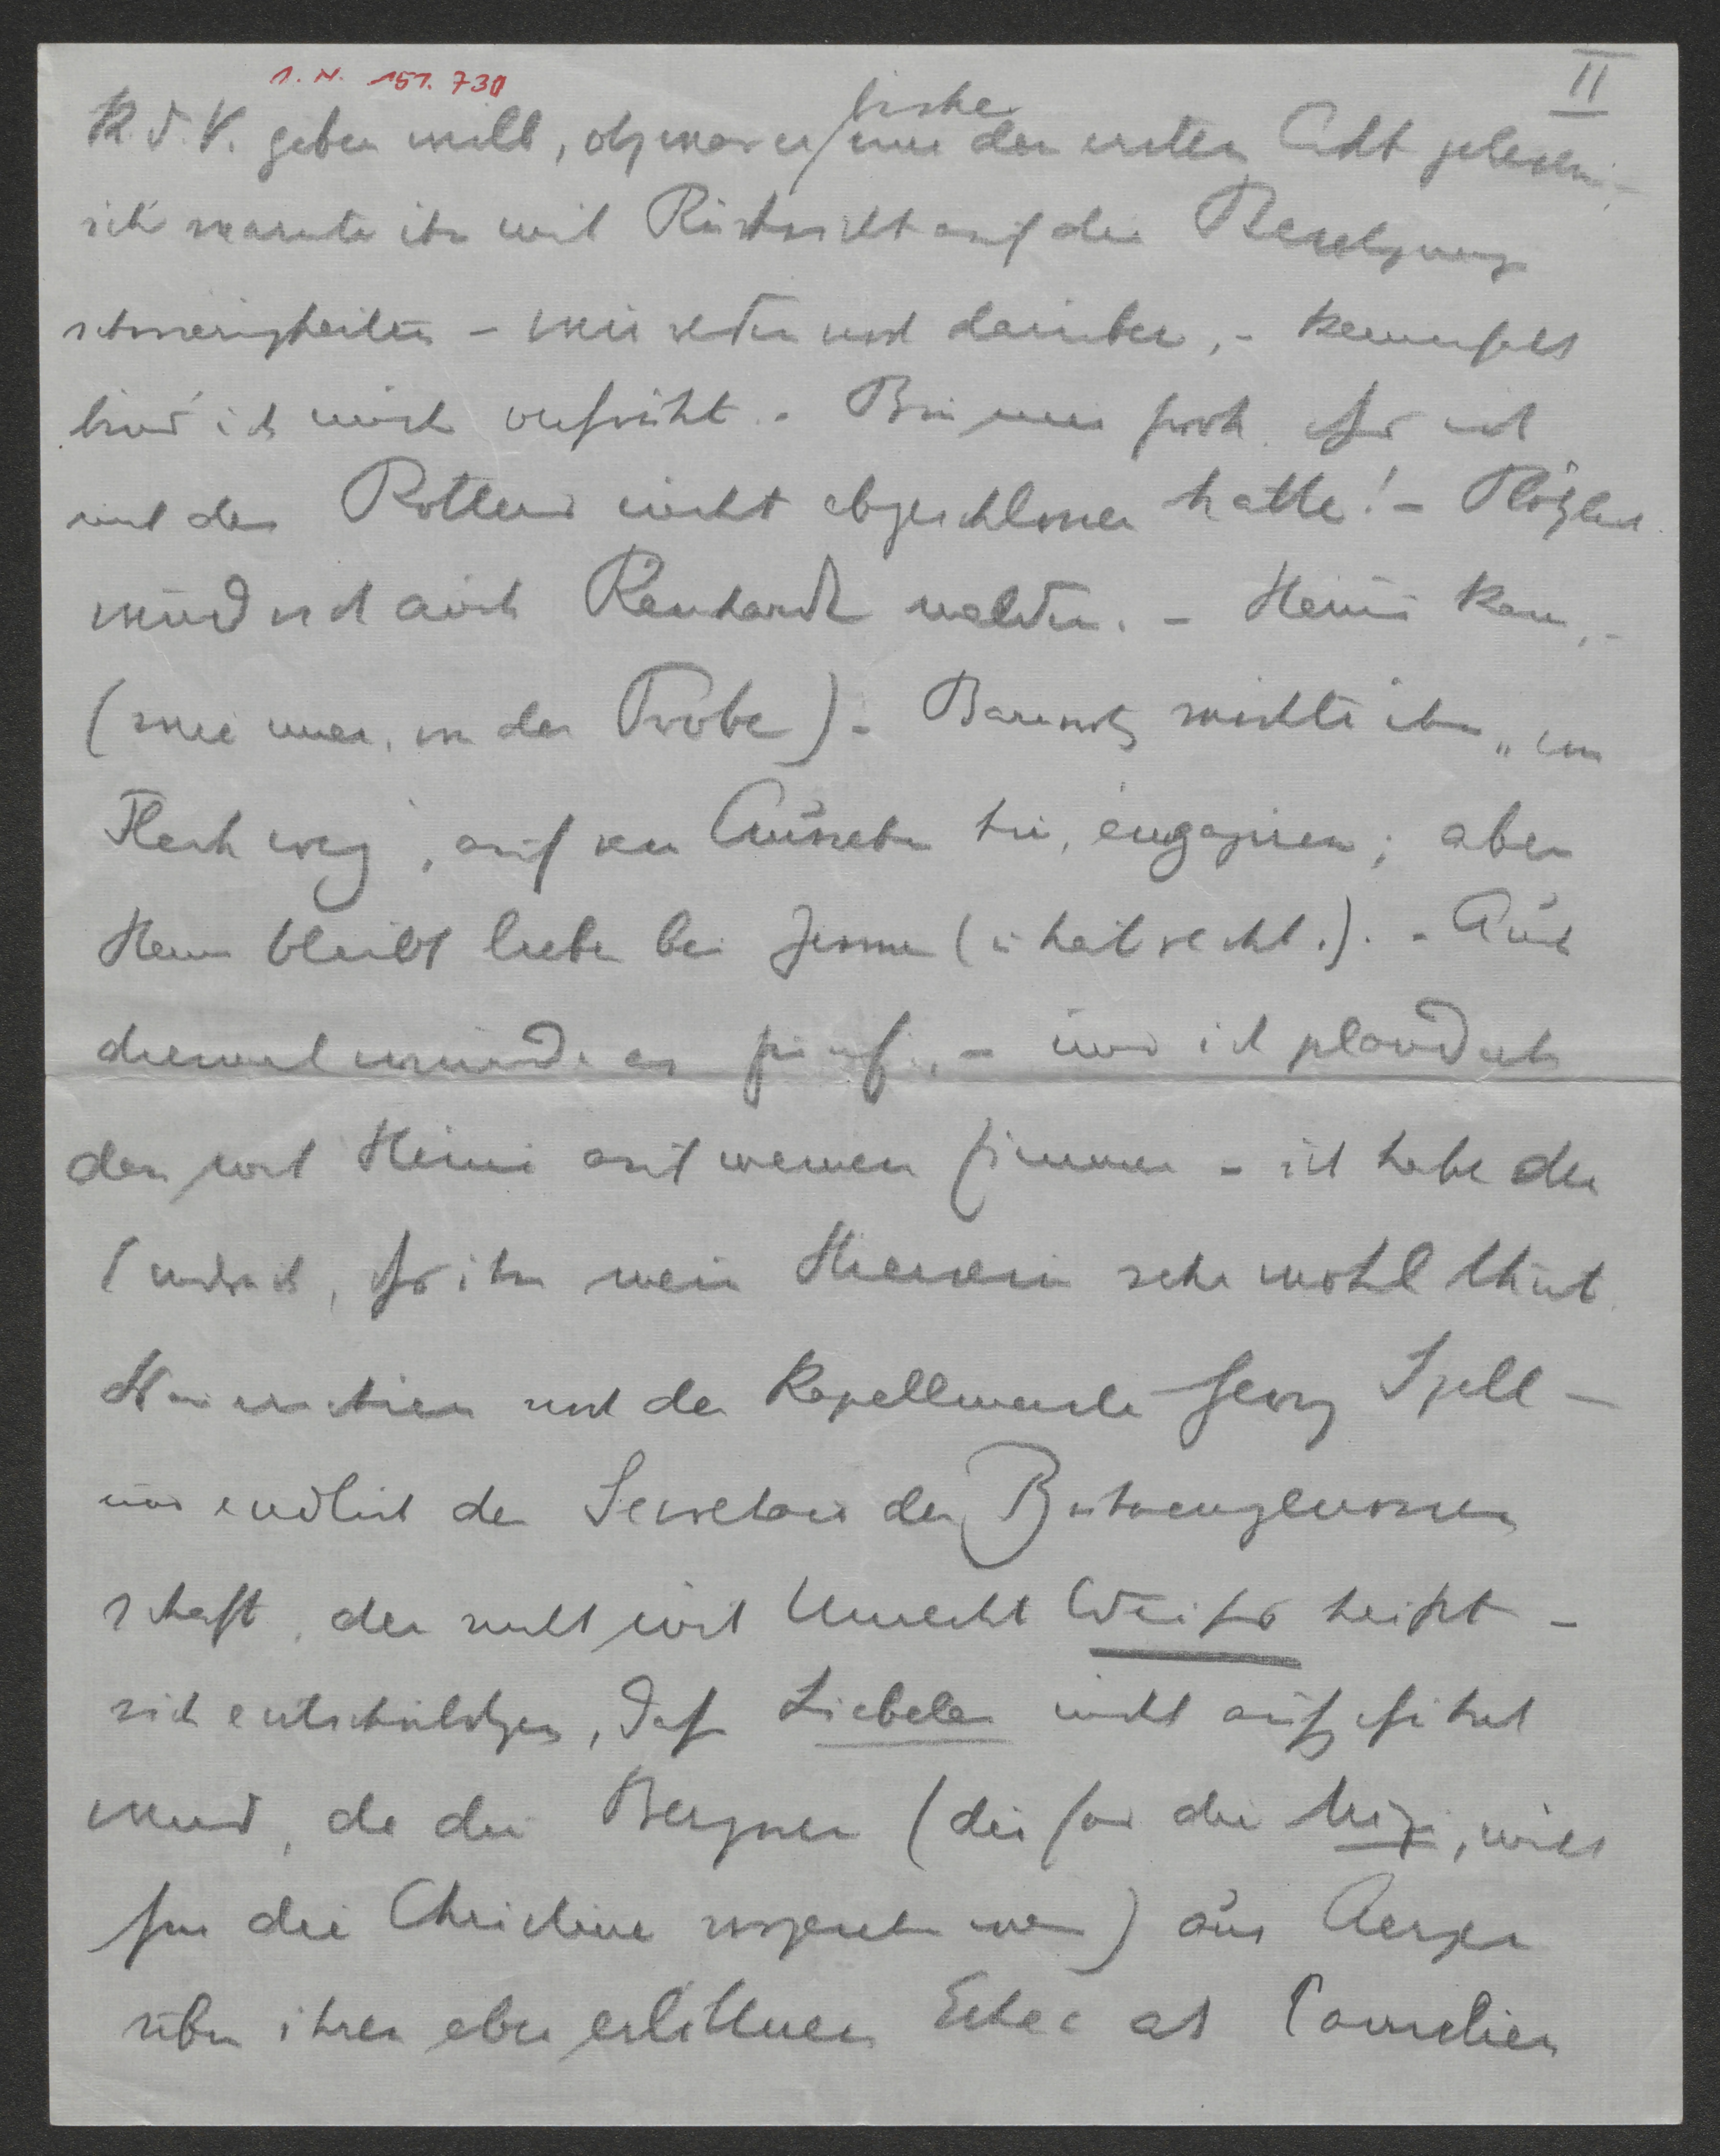 I. N. 151.730
II
K. d. V. geben will, obzwar er bisher nur den ersten Akt gelesen; -
ich warnte ihn mit Rücksicht auf die Besetzungs
schwierigkeiten - wir reden noch darüber, - keinesfalls
bind ich mich verfrüht. - Bin nur froh dss ich
mit den Rotters nicht abgeschlossen hatte! - 
wird sich auch Reinhardt melden. - Heini kam, -
(wie immer, von der Probe) - Barnowsky möchte ihn „vom
Fleck weg", auf  Aussehn hin, engagiren; aber
Heini bleibt lieber bei Jessner (u hat recht.). - Auch
diesmal wurde es fünf, - und ich plauderte
dann mit Heini auf meinem Zimmer - ich habe den
Eindruck, dss ihm mein Hiersein sehr wohl thut.
Dann erschien noch der Kapellmeister Georg Szell -
und endlich der Secretär der Bühnengenossen
schaft, der nicht mit Unrecht Weiss heißt -
sich entschuldigen, daß Liebelei nicht aufgeführt
wird, da die Bergner (die für die Mizi, nicht
für die Christine vorgesehen war) aus Aerger
über ihren eben erlittenen Echec als Camelien